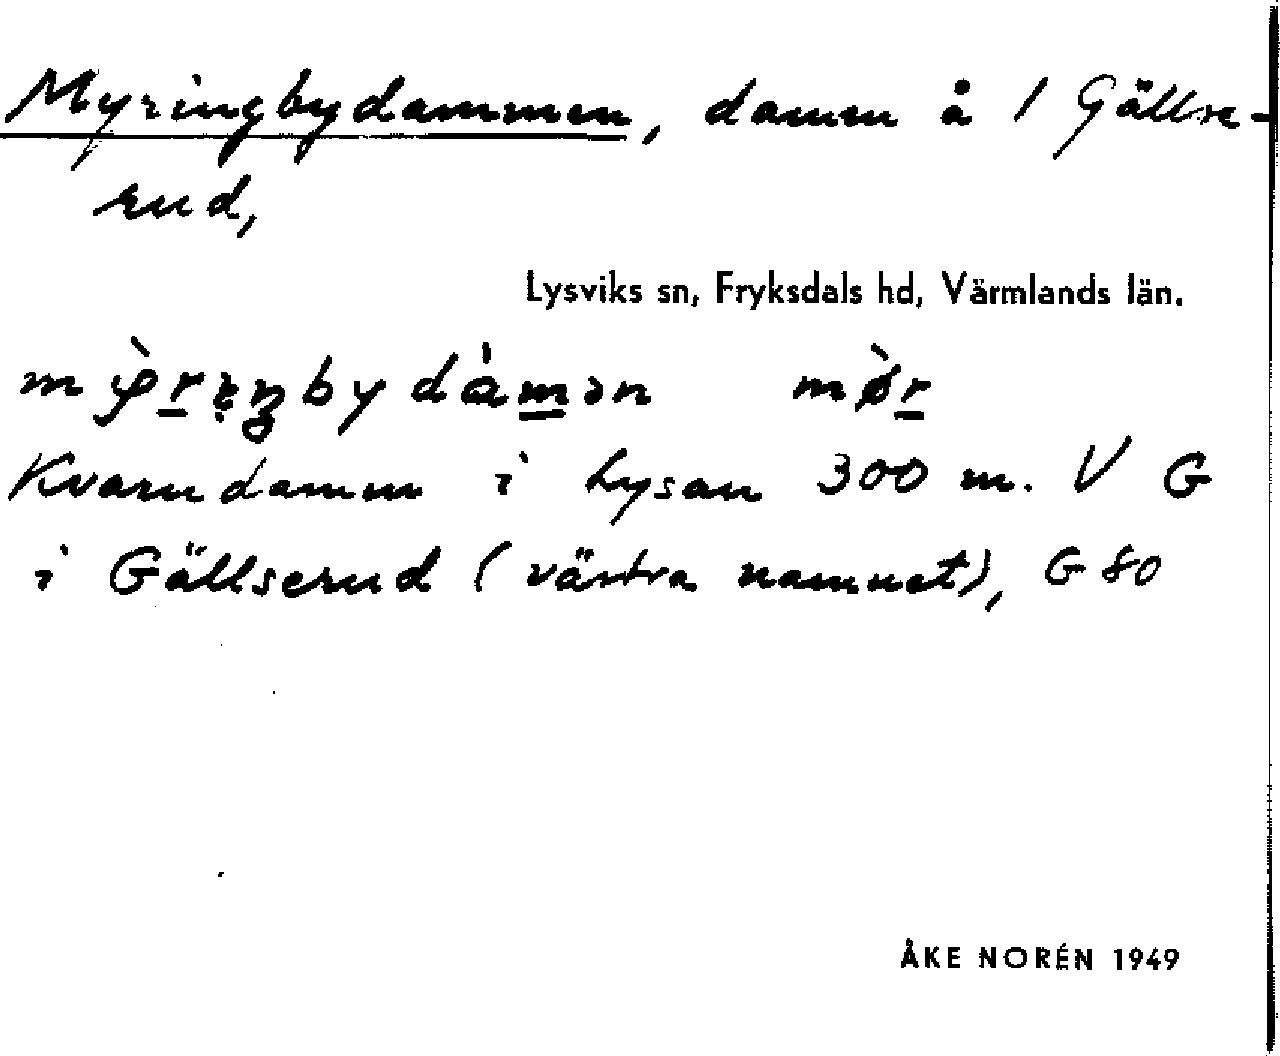 Myringbydammen, damm å 1 Gällse-
rud,
Lysviks sn, Fryksdals hd, Värmlands län.
bydàmən mør̀
Kvarndamm i Lysan 300 m. V G
i Gällserud (västra namnet), G 80
ÅKE NORÉN 1949